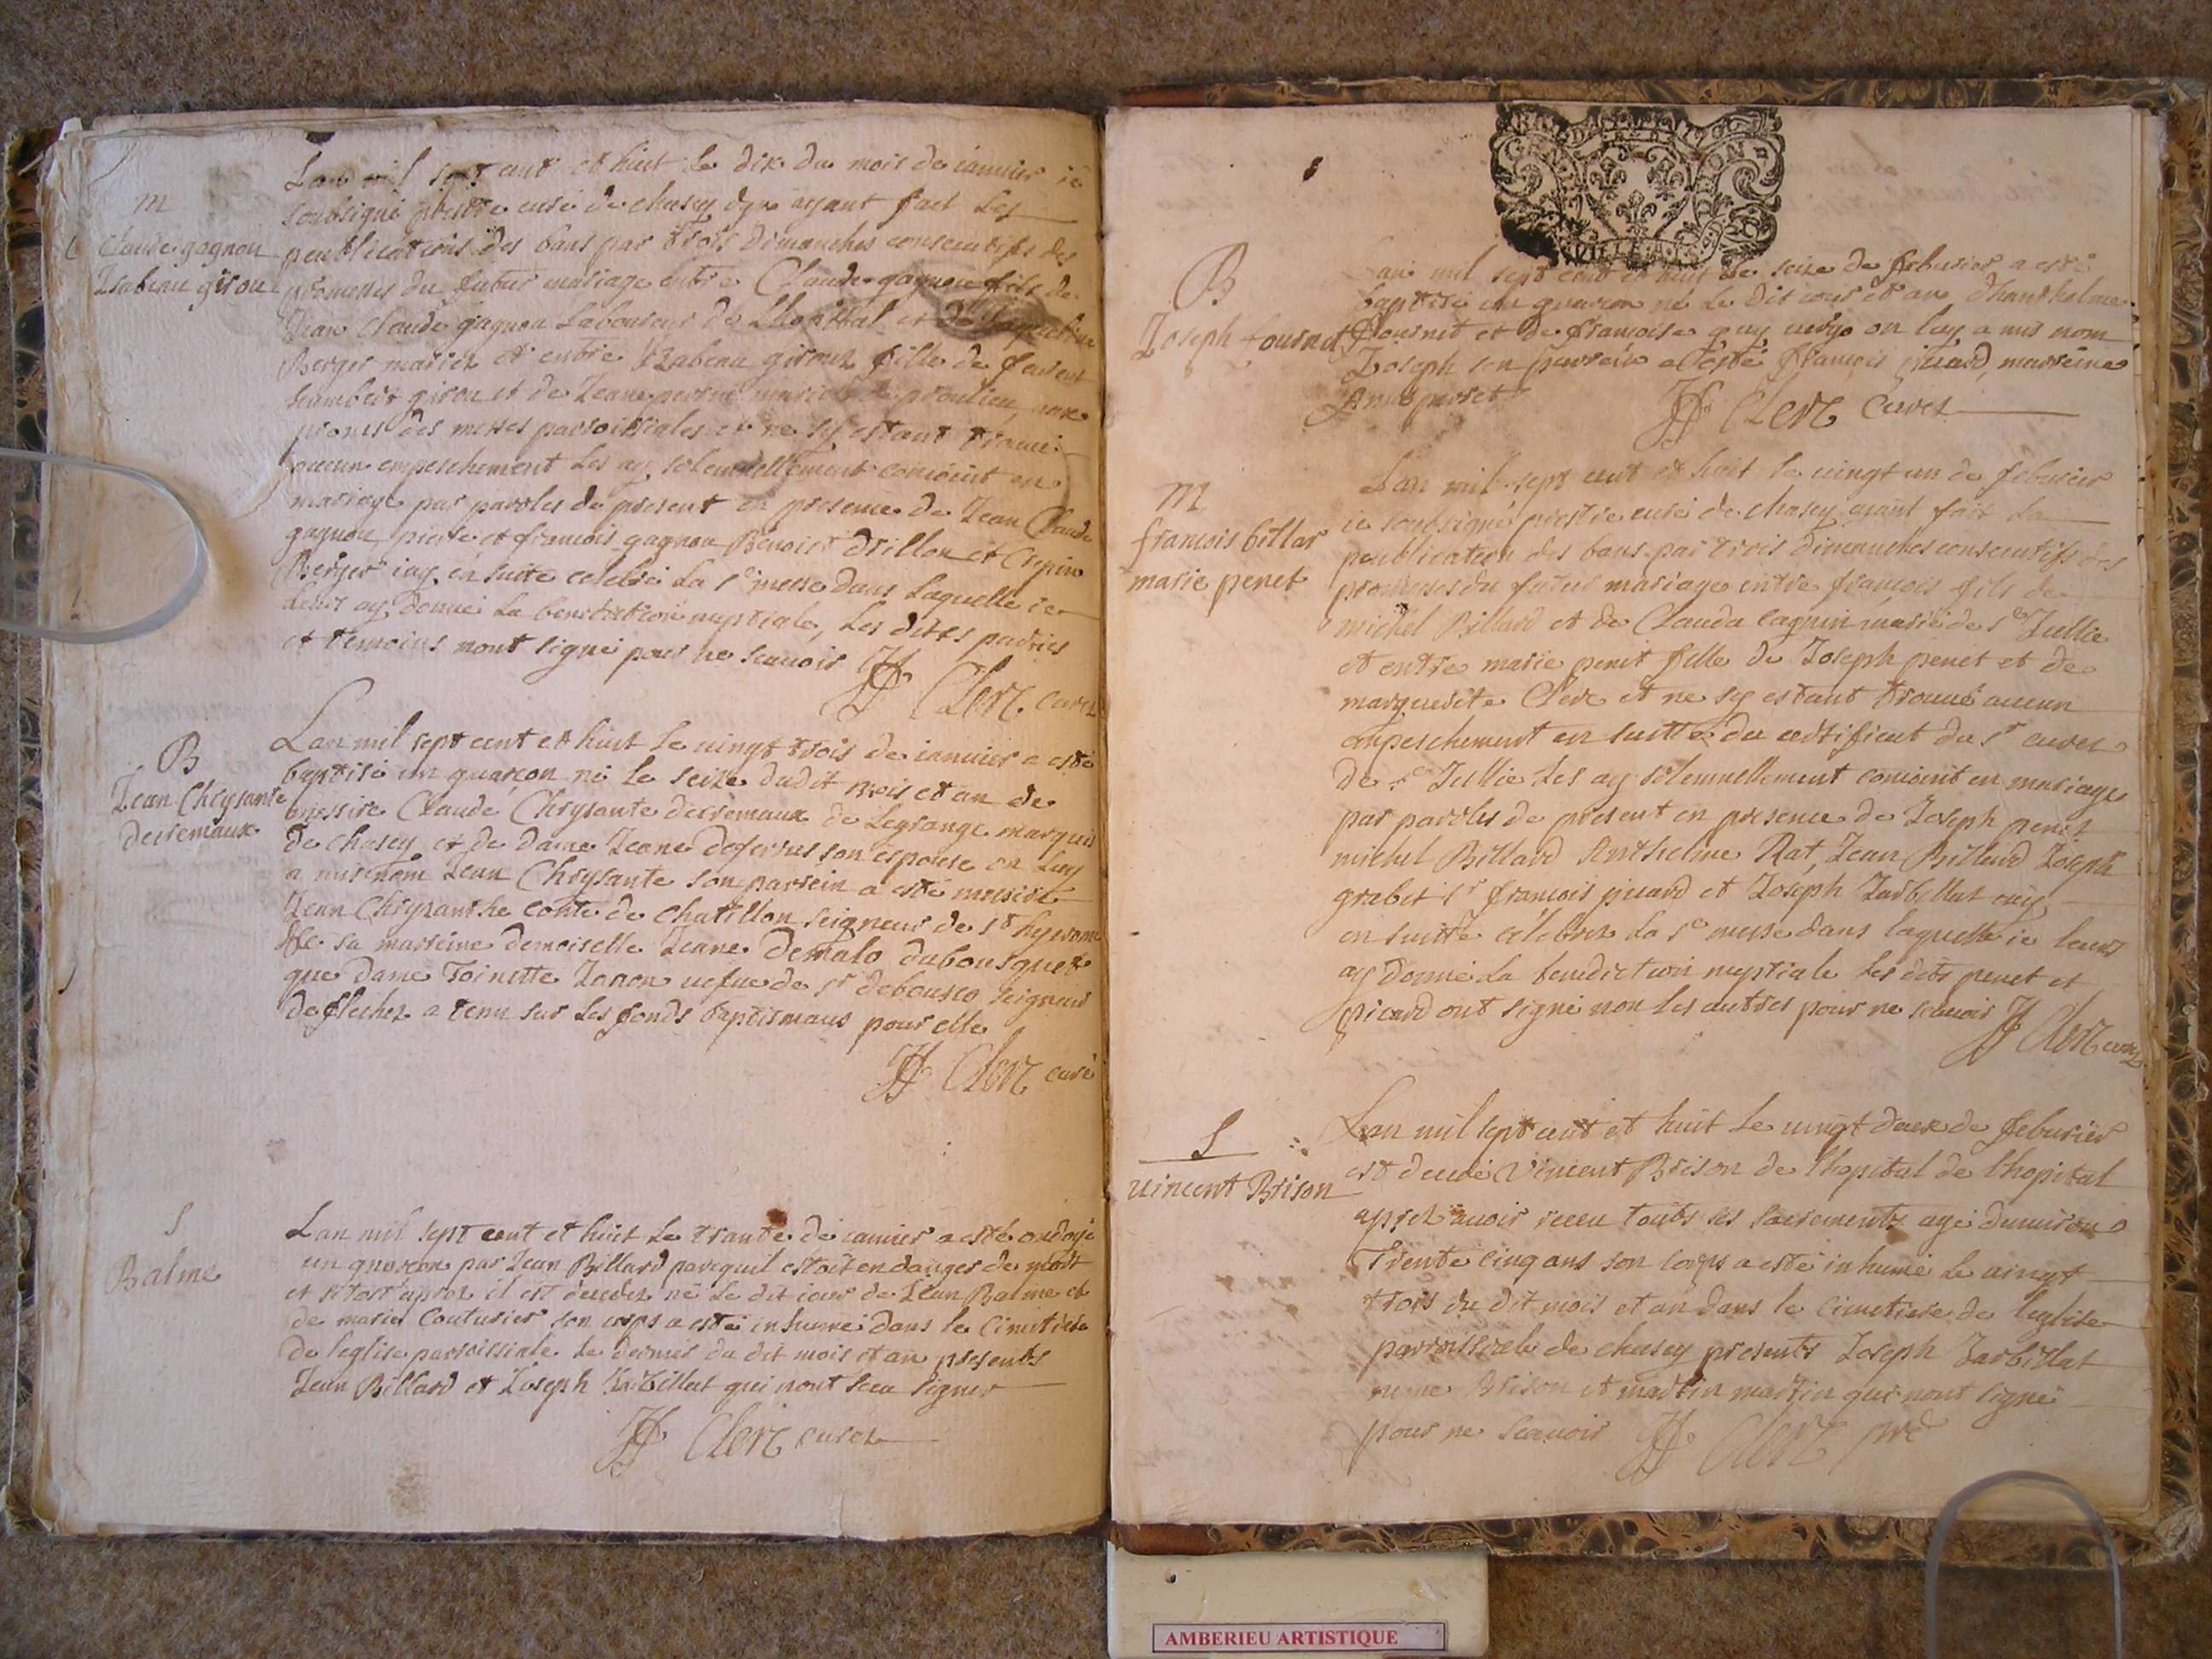 m
Claude gagnon
Isabeau giron
Lan mil sept cent et huit le dix du mois de ianuier ie
soubsigné prestre curé de chasey dyn ayant fait les
peublications des bans par trois dimanches consecutifs des
promesses du futur mariage entre Claude gagnon fils de
Jean Claude gagnon Laboureur de Lhopittal et de
Berger mariez et entre Isabeau giron fille de feu
humbert giron et de Jeane mariez de proulieu aux
prones des messes parroissiales et ne sy estant trouué
aucun empeschement les ay solemnellement conioint en
mariage par paroles de present en presence de Jean Claude
gagnon, pierre et francois gagnon Benoist drillon et Crepin
Berger iay en suite celebré la se messe dans laquelle ie
leur ay donné la benediction nuptiale, les dittes parties
et temoins nont signé pour ne scauoir JF Clerc curez
B
Jean Chrysante
decremaux
Lan mil sept cent et huit le uingt trois de ianuier a esté
baptisé un guarcon né le seize dudit mois et an de
messire Claude Chrysante decremaux de Legrange marquis
de chasey et de dame Jeane deferrus son espouse on luy
a mis nom Jean Chrysante son parrein a esté messire
Jean Chrysanthe conte de chatillon seigneur de st hyerome
&c sa marreine demoiselle Jeane demalo dubousquet
que dame Toinette Janon uefue de sr debousco seigneur
de flechez a tenu sur les fonds baptismaus pour elle
JF Clerc curé
S
Balme
Lan mil sept cent et huit le trante de ianuier a esté ondoyé
un guarcon par Jean Billard parcequil estoit en danger de mort
et sitost aprez il est decedez né le dit iour de Jean Balme et
de marie Couturier son corps a esté inhumé dans le Cimetiere
de leglise parroissiale le dernier du dit mois et an presents
Jean Billard et Joseph Jarbillat qui nont sceu signer
JF Clerc curez
B
Joseph fournet
Lan mil sept cent et huit le seize de feburier a esté
baptisé un guarcon né le dit iour et an dhanthelme
fournet et de francoise on luy a mis nom
Joseph son parrein a esté francois picard, marreine
Anne perret JF Clerc curez
m
francois billar
marie penet
Lan mil sept cent et huit le uingt un de feburier
ie soubsigné prestre curé de chasey ayant fait la
peublication des bans par trois dimanches consecutifs des
promesses du futur mariage entre francois fils de
michel Billard et de Clauda cagnin marié de ste Jullie
et entre marie penet fille de Joseph penet et de
marguerite Clerc et ne sy estant trouué aucun
empeschement en suitte du certificat du sr curez
de ste Jullie les ay solemnellement conioint en mariage
par paroles de present en presence de Joseph penet
michel Billard Anthelme Rat, Jean Billard Joseph
grabet sr francois picard et Joseph Jarbillat iay
en suitte célebrez la se messe dans laquelle ie leurs
ay donné la benediction nuptiale les dits penet et
picard ont signé non les autres pour ne scauoir JF Clerc curez
S
uincent Brison
Lan mil sept cent et huit le uingt deux de feburier
est decedé Vincent Brison de lhopital de lhopital
aprez auoir receu touts ses sacrements agé denuiron
Trente cinq ans son corps a esté inhumé le uingt
trois du dit mois et an dans le cimetiere de leglise
parroissiale de chasey presents Joseph Jarbillat
Brison et martin martin qui nont signé
pour ne scauoir JF Clerc pre
AMBERIEU ARTISTIQUE